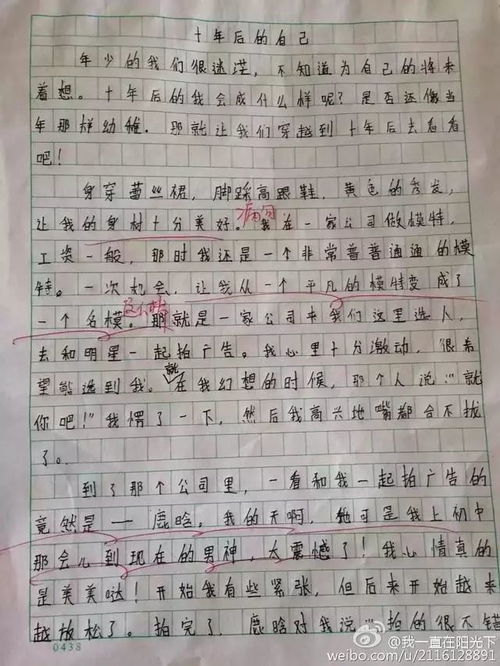 十年后的自己
年少的我们很迷茫，不知道为自己的将来
着想。十年后的我会成什么样呢？是否还像当
年那样幼稚。那就让我们穿越到十年后去看看
吧！
身穿蕾丝裙，脚踩高跟鞋，黄色的秀发，
让我的身材十分美好。我在一家公司做模特，
病句
工资一般，那时我还是一个非常普普通通的模
特。一次机会，让我从一个平凡的模特变成了
一个名模。那就是一家公司来我们这里选人，
去和明星一起拍广告。我心里十分激动，很希
望能选到我。就在我幻想的时候，那个人说：“就
你吧！”我愣了一下，然后我高兴地嘴都合不拢
了。
到了那个公司里，一看和我一起拍广告的
竟然是——鹿晗。我的天啊，他可是我上初中
那会儿到现在的男神，太震憾了！我心情真的
是美美哒！开始我有些紧张，但后来开始越来
越放松了。拍完了，鹿晗对我说：“拍的很不错
0438
@我一直在阳光下
weibo.com/u/2116128891